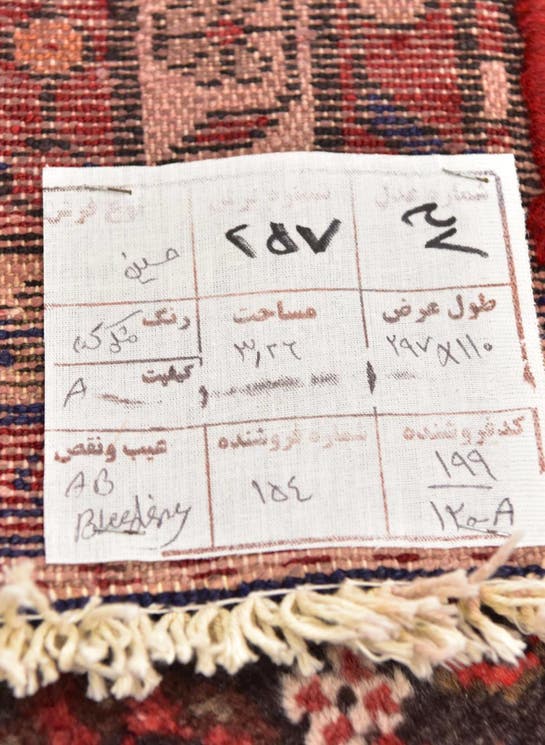 شماره عدل شماره فرش نوع فرش
۲۵۷
طول عرض مساحت رنگ
۲۹۷×۱۱۰ ۳,۲۶
کیفیت
A
کد فروشنده شماره فروشنده عیب و نقص
۱۹۹ ۱۵۴ AB
۱۲۰-A Bleeding